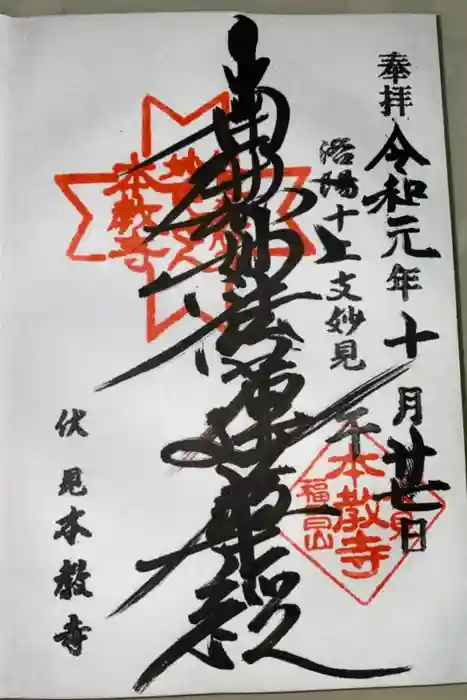 奉拝 令和元年十月廿日
洛陽十二支妙見 午
南無妙法蓮華経
伏見本教寺
本教寺
本教寺